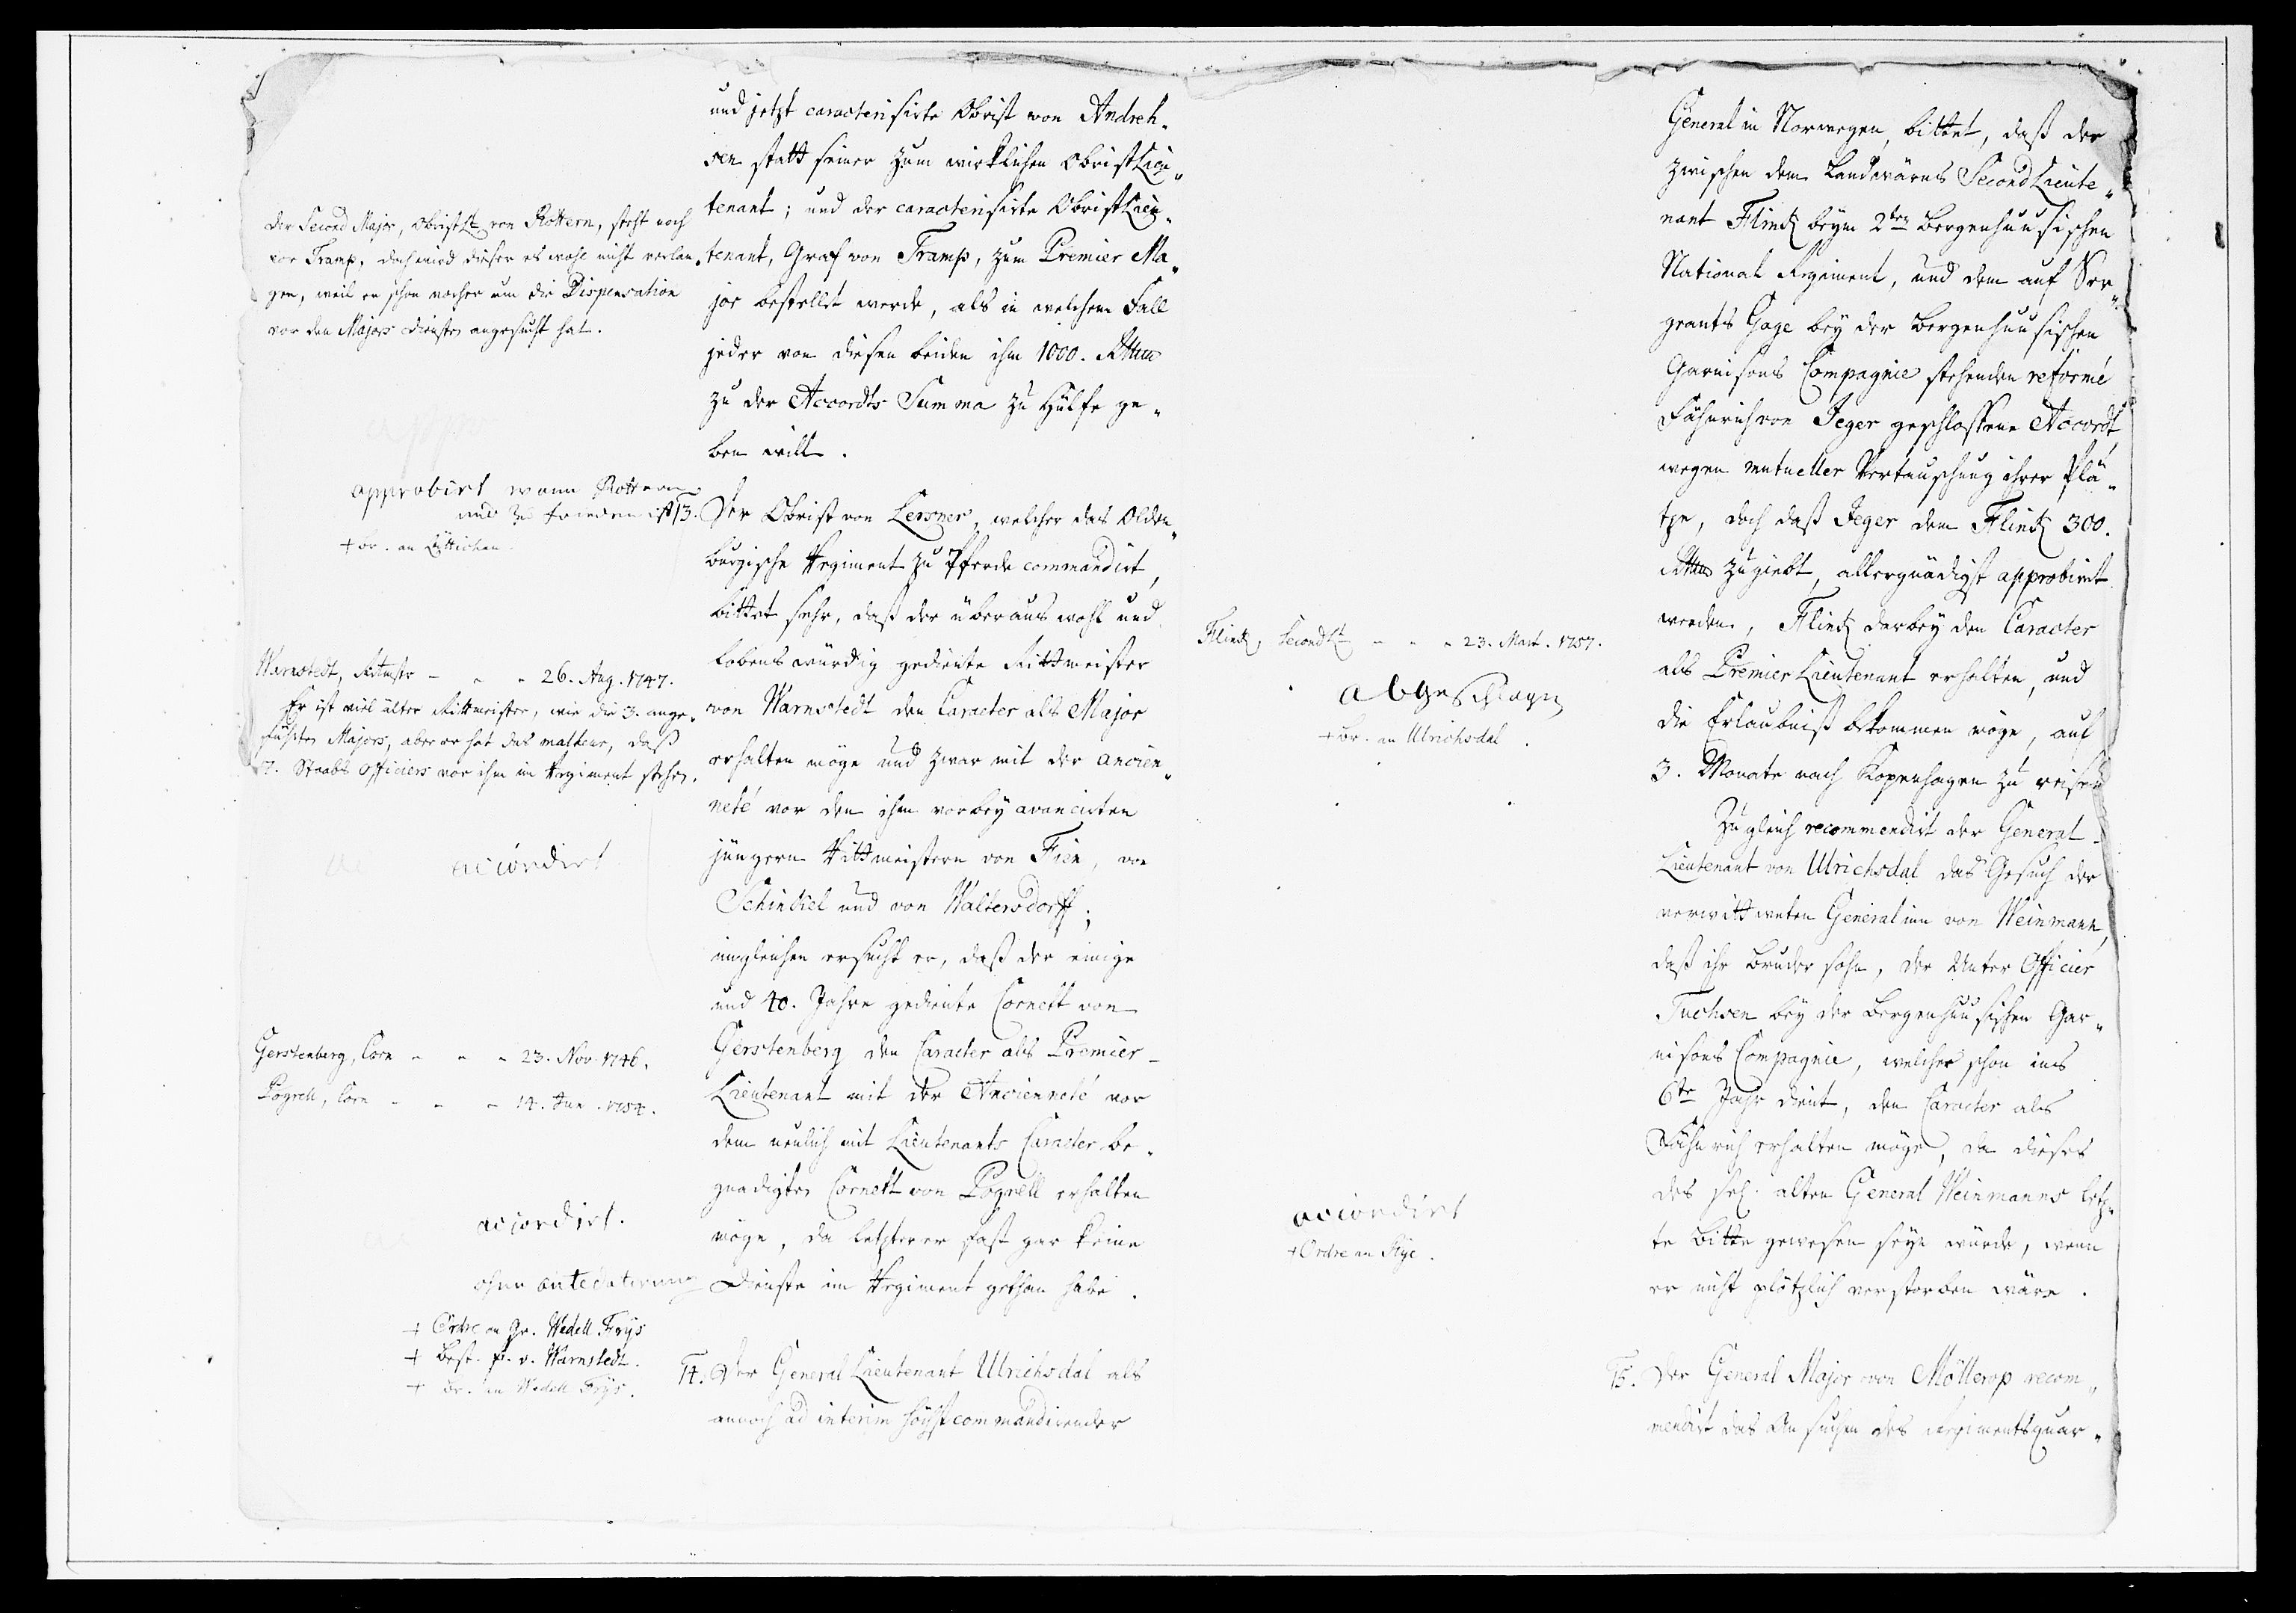 und jetzt caracterisirte Obrist von Andreh-
sen statt seiner zum wirklichen ObristLieu-
tenant; und der caracterisirte ObristLieu-
tenant, Graf von Tramp, zum Premier Ma-
jor bestellt werde, als in welchem Fall
jeder von diesen beiden ihm 1000. Rthlr
zu der Accordts Summa zu Hülfe ge-
ben will.
Der Second Major, ObristLt von Rottern, steht noch
vor Tramp, doch wird dieser es wohl nicht verlan-
gen, weil er schon vorher um die Dispensation
von den Majors Diensten angesucht hat.
approbirt wann Rottern
mit zu frieden ist
+ Br. an Lüttichau.
13. Der Obrist von Lersner, welcher das Olden-
burgische Regiment zu Pferde commandirt,
bittet sehr, daß der überaus wohl und
lobenswürdig gediente Rittmeister
von Warnstedt den Caracter als Major
erhalten möge und zwar mit der ancien-
neté vor den ihm vorbey avancirten
jüngern Rittmeistern von Fien, von
Schindel und von Waltersdorff;
imgleichen ersucht er, daß der einige
und 40. Jahre gediente Cornett von
Gerstenberg den Caracter als Premier-
Lieutenant mit der Ancienneté vor
dem neulich mit Lieutenants Caracter be-
gnadigten Cornett von Pogrell erhalten
möge, da letzterer fast gar keine
Dienste im Regiment gethan habe.
Warnstedt, Rittmstr - - - 26. Aug. 1747.
Er ist viel älter Rittmeister, wie die 3. ange-
führten Majors, aber er hat das malheur, daß
7. Staabs Officiers vor ihm im Regiment stehen.
accordirt
Gerstenberg, Corn - - - 23. Nov. 1746.
Pogrell, Corn - - - 14. Jun. 1754.
accordirt.
ohne antedatirung
+ Ordre an Gr. Wedell Frijs
+ Best. fr. v. Warnstedt.
+ Br. an Wedell Frijs.
14. Der General Lieutenant Ulrichsdal als
annoch ad interim höchstcommandirender
General in Norwegen, bittet, daß der
zwischen dem Landwärns Second Lieute-
nant Flinck beym 2ten Bergenhuusischen
National Regiment, und dem auf Ser-
geants Gage bey der Bergenhuusischen
Garnisons Compagnie stehenden reformé
Fähnrich von Jeger geschlossene Accordt,
wegen mutueller Vertauschung ihrer Plä-
tze, doch daß Jeger dem Flinck 300.
Rthlr zugiebt, allergnädigst approbirt
werden, Flinck darbey den Caracter
als Premier Lieutenant erhalten, und
die Erlaubniß bekommen möge, auf
3. Monate nach Kopenhagen zu reisen
Flinck, SecondLt - - - 23. Mart. 1757.
abgeschlagen
+ Br. an Ulrichsdal.
Zugleich recommendirt der General-
Lieutenant von Ulrichsdal das Gesuch der
verwittweten Generalinn von Weinmann,
daß ihr Bruder sohn, der Unter Officier
Tuchsen bey der Bergenhuusischen Gar-
nisons Compagnie, welcher schon ins
6te Jahr dient, den Caracter als
Fähnrich erhalten möge, da dieses
des sel. alten General Weinmanns letz-
te Bitte gewesen seyn würde, wenn
er nicht plötzlich verstorben wäre.
accordirt
+ Ordre an Rye.
15. Der General Major von Möllerop recom-
mendirt das Ansuchen des Regimentsquar-